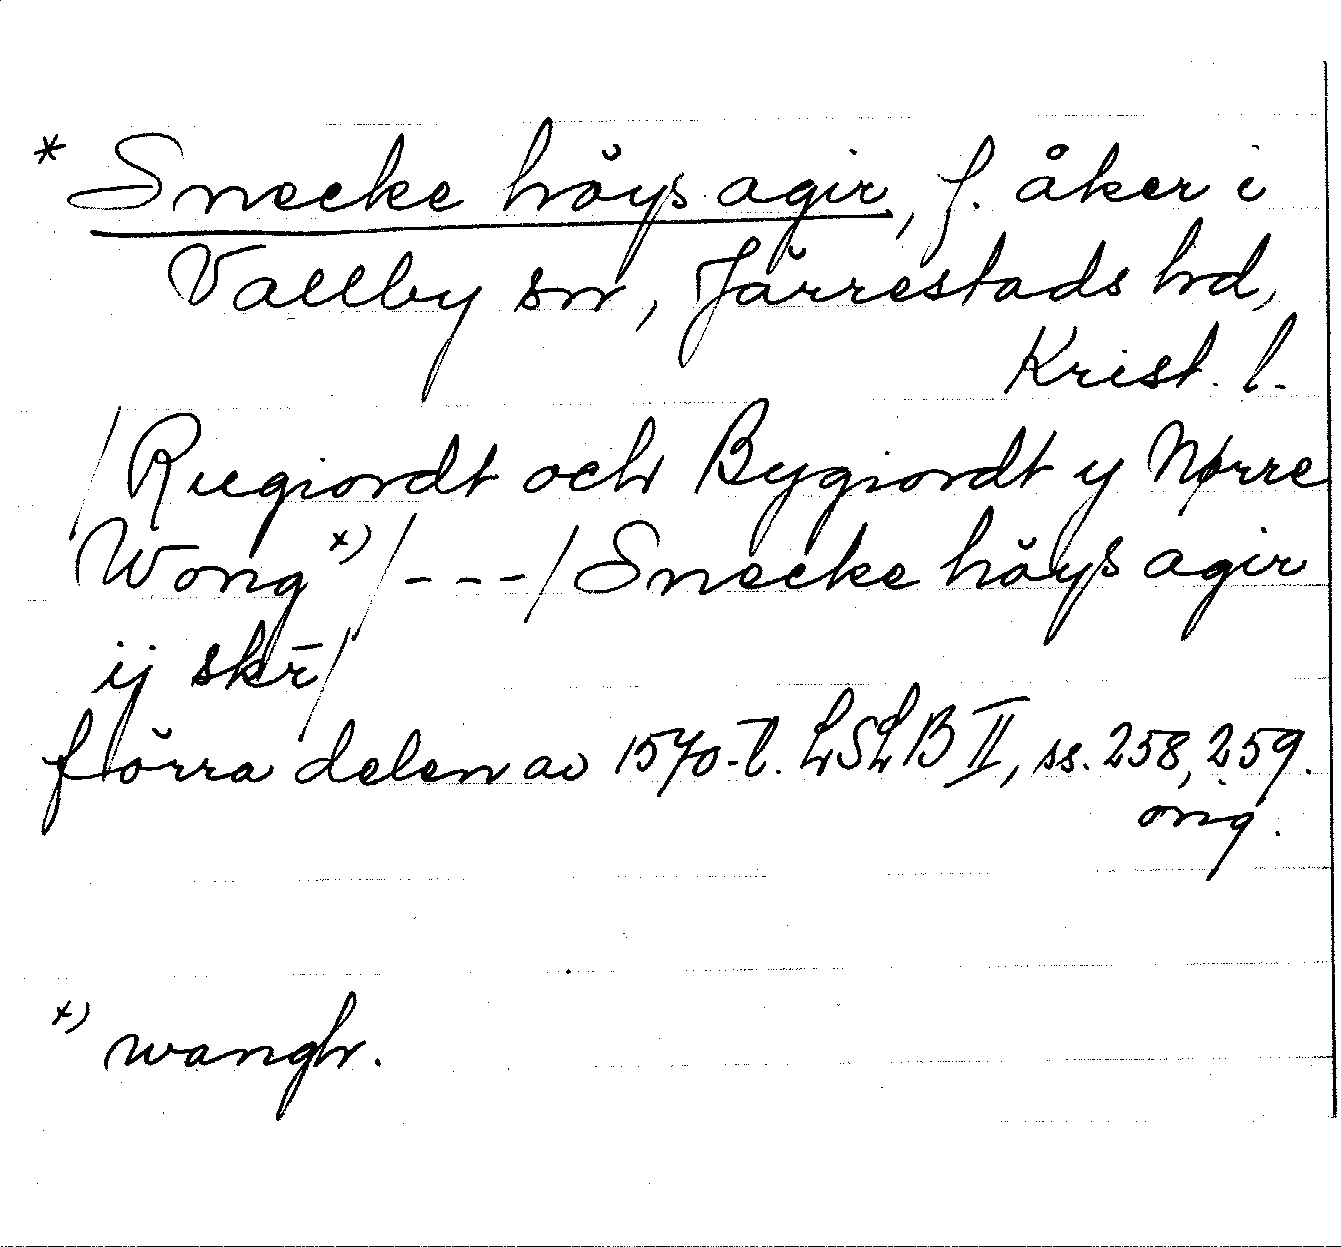 * Snecke höys agir, f. åker i
Vallby sn, Järrestads hd,
Krist. l.
/Rugiordt och Bygiordt y Nørre
Wong x)/---/Snecke höys agir
ij skr̄/
förra delen av 1570-t. LSLB II, ss. 258, 259.
orig.
x) wangh.